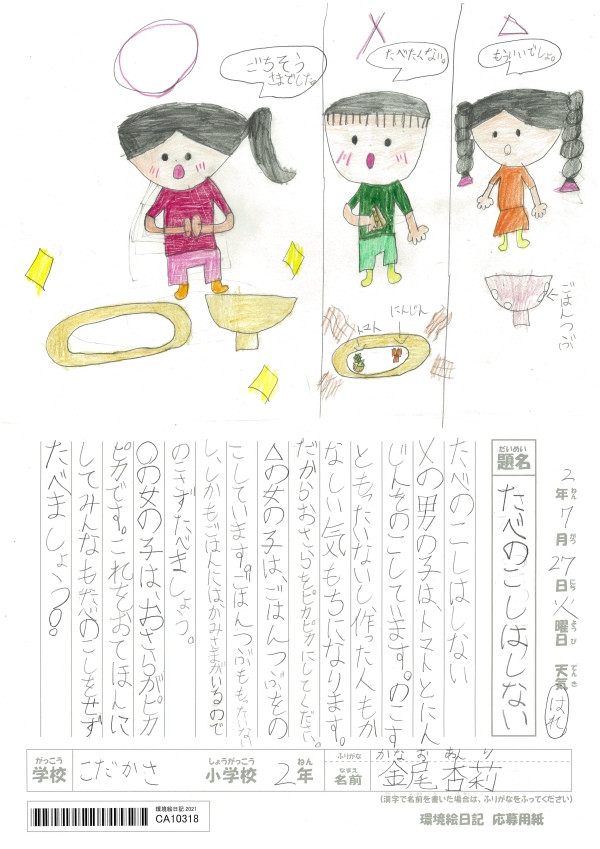 ごちそう
さまでした。
たべたくない。
もういいでしょ。
トマト
にんじん
ごはんつぶ
2年7月27日火曜日 天気 はれ
ねん がつ にち ようび てんき
だいめい
題名
たべのこしはしない
たべのこしはしない
×の男の子は、トマトとにん
じんをのこしています。のこす
ともったいないし、作った人もか
なしい気もちになります。
だからおさらをピカピカにしてください。
△の女の子は、ごはんつぶをの
こしています。ごはんつぶももったいない
し、しかもごはんにはかみさまがいるので
のこさずたべましょう。
○の女の子は、おさらがピカ
ピカです。これをおてほんに
してみんなもたべのこしをせず
たべましょう。
がっこう
学校
こだかさ
しょうがっこう
小学校
2年
ねん
ふりがな
かな お あん り
なまえ
名前
金尾 杏莉
(漢字で名前を書いた場合は、ふりがなをふってください)
環境絵日記 2021
CA10318
環境絵日記 応募用紙